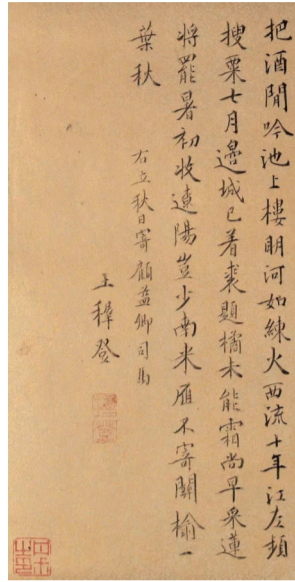 把酒閒吟池上樓明河如練火西流十年江左頻
搜粟七月邊城已着裘題橘未能霜尚早采蓮
將罷暑初收遼陽豈少南来雁不寄關榆一
葉秋 右立秋日寄顧益卿司馬
王穉登